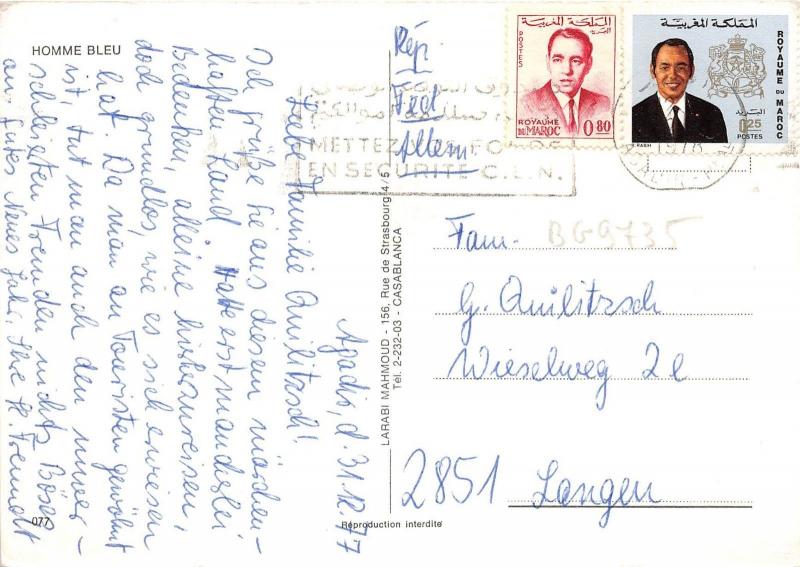 HOMME BLEU
Agadir, d. 31.12.77
Liebe Familie Quilitzsch!
Ich grüße Sie aus diesem märchen-
haften Land. Hatte erst mancherlei
Bedenken, alleine hinzureisen,
doch grundlos, wie es sich erwiesen
hat. Da man an Touristen gewöhnt
ist, tut man auch den unver-
schleierten Fremden nichts Böses
an. Gutes Neues Jahr, Ihre H.
077
LARABI MAHMOUD - 156, Rue de Strasbourg 4/5
Tél. 2-232-03 - CASABLANCA
Réproduction interdite
Rép.
Fed.
Allem.
المملكة المغربية
البريد
POSTES
ROYAUME
DU MAROC
0.80
المملكة المغربية
ROYAUME DU MAROC
البريد
0.25
POSTES
METTEZ
EN SECURITE C.E.N.
BG9735
Fam.
G. Quilitzsch
Wieselweg 2e
2851 Langen